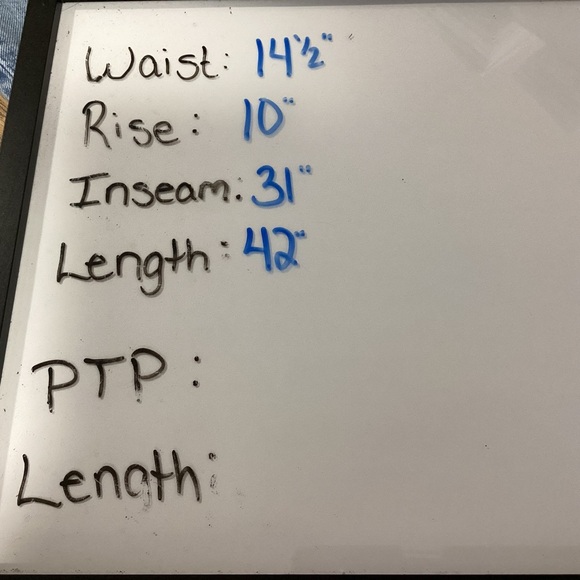 Waist: 14½"
Rise: 10"
Inseam: 31"
Length: 42"
PTP:
Length: